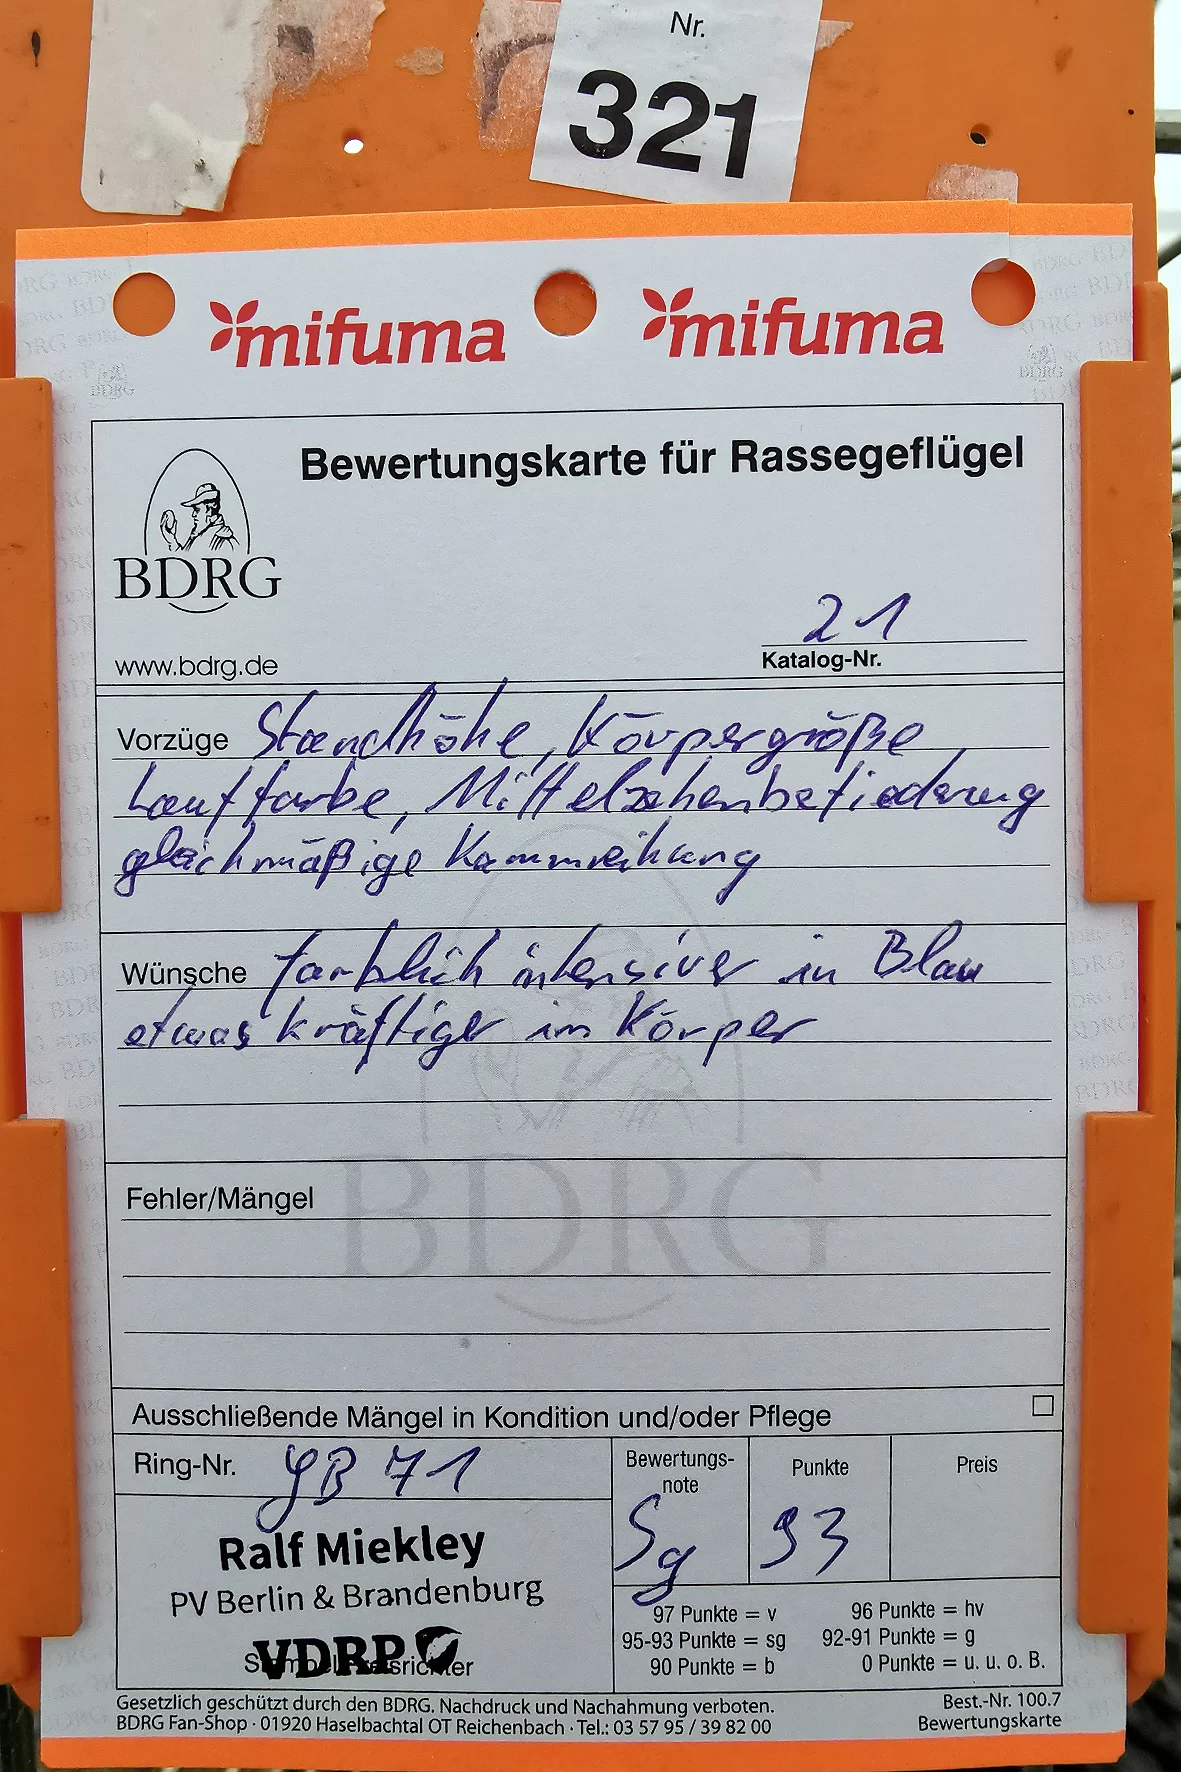 Nr.
321
mifuma mifuma
Bewertungskarte für Rassegeflügel
BDRG
21
www.bdrg.de
Katalog-Nr.
Vorzüge Standhöhe, Körpergröße,
Lauffarbe, Mittelzehenbefiederung
gleichmäßige Kammreihung
Wünsche farblich intensiver in Blau
etwas kräftiger im Körper
BDRG
Fehler/Mängel
Ausschließende Mängel in Kondition und/oder Pflege
Ring-Nr. GB 71
Bewertungs-
note
Punkte
Preis
Sg
93
Ralf Miekley
PV Berlin & Brandenburg
VDRP
97 Punkte = v 96 Punkte = hv
95-93 Punkte = sg 92-91 Punkte = g
90 Punkte = b 0 Punkte = u. u. o. B.
Gesetzlich geschützt durch den BDRG. Nachdruck und Nachahmung verboten.
BDRG Fan-Shop · 01920 Haselbachtal OT Reichenbach · Tel.: 03 57 95 / 39 82 00
Best.-Nr. 100.7
Bewertungskarte